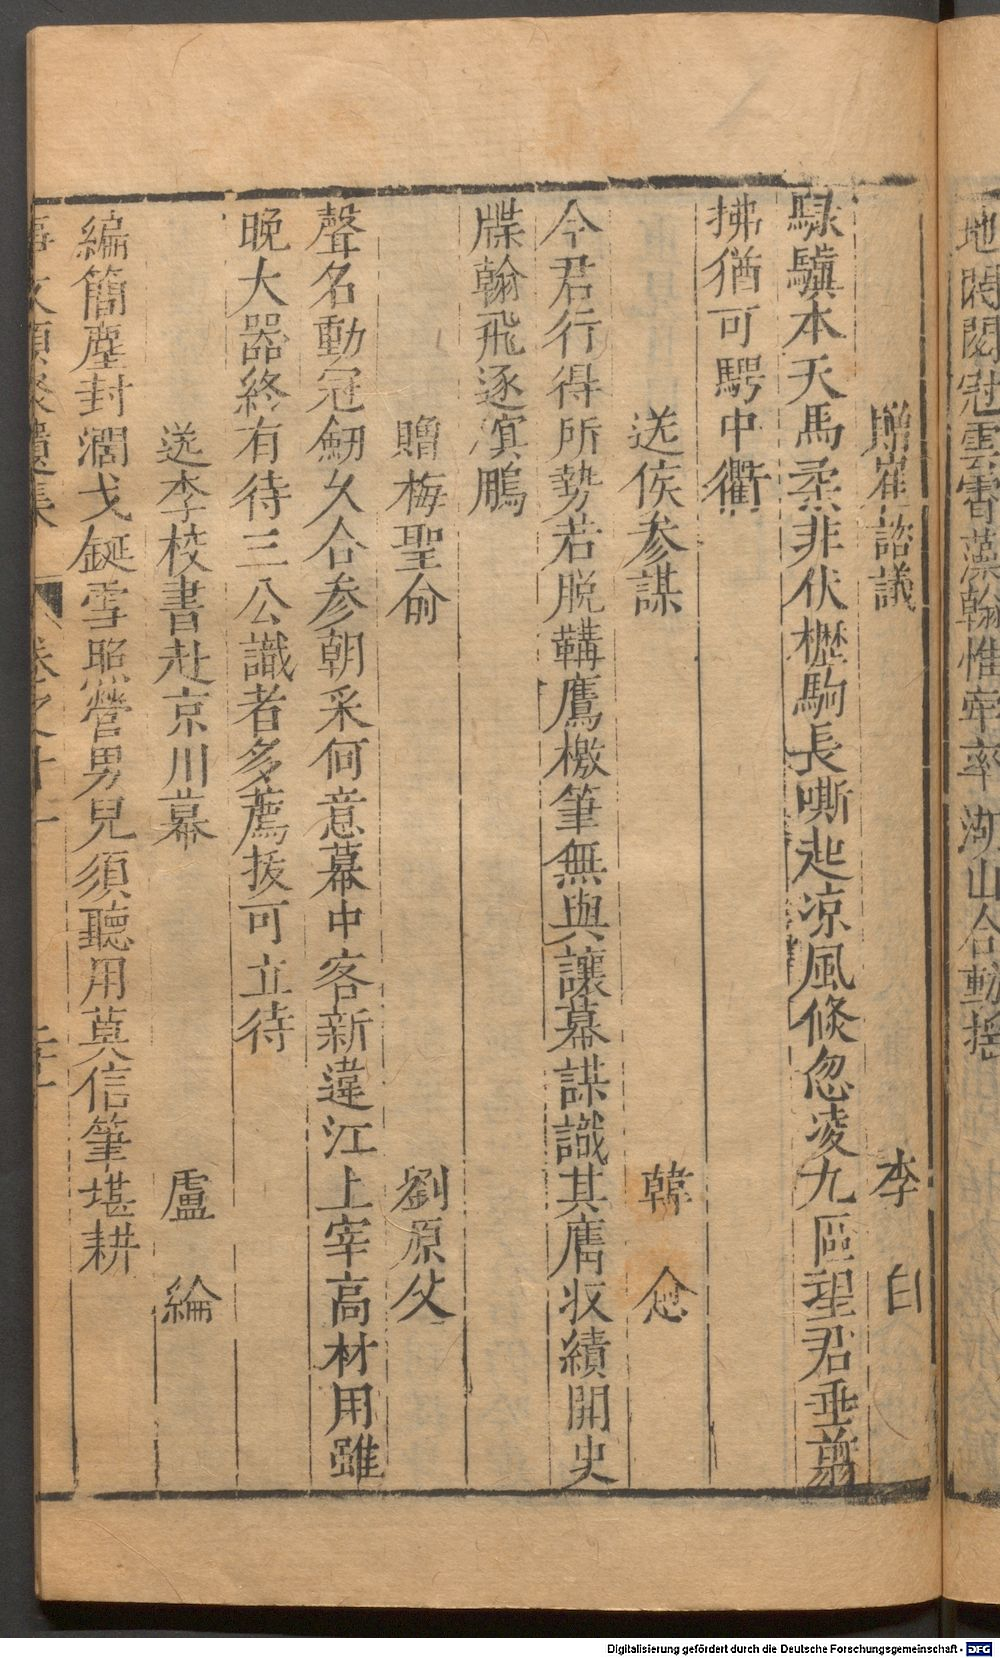 地時閱冠雲霄藻翰惟牽率湖山合動搖
贈崔諮議　李白
騄驥本天馬柔非伏櫪駒長嘶起涼風倐忽凌九區望君垂剪
拂猶可騁中衢
送侯参謀　韓愈
今君行得所勢若脫鞲鷹檄筆無與讓幕謀識其膺收績開史
牒翰飛逐溟鵬
贈梅聖俞　劉原父
聲名動冠劒久合参朝采何意幕中客新違江上宰高材用雖
晚大器終有待三公識者多薦拔可立待
送李校書赴京川幕　盧綸
編簡塵封濶戈鋋雪照營男兒須聽用莫信筆堪耕
事文類聚遺集　卷之十一
Digitalisierung gefördert durch die Deutsche Forschungsgemeinschaft - DFG